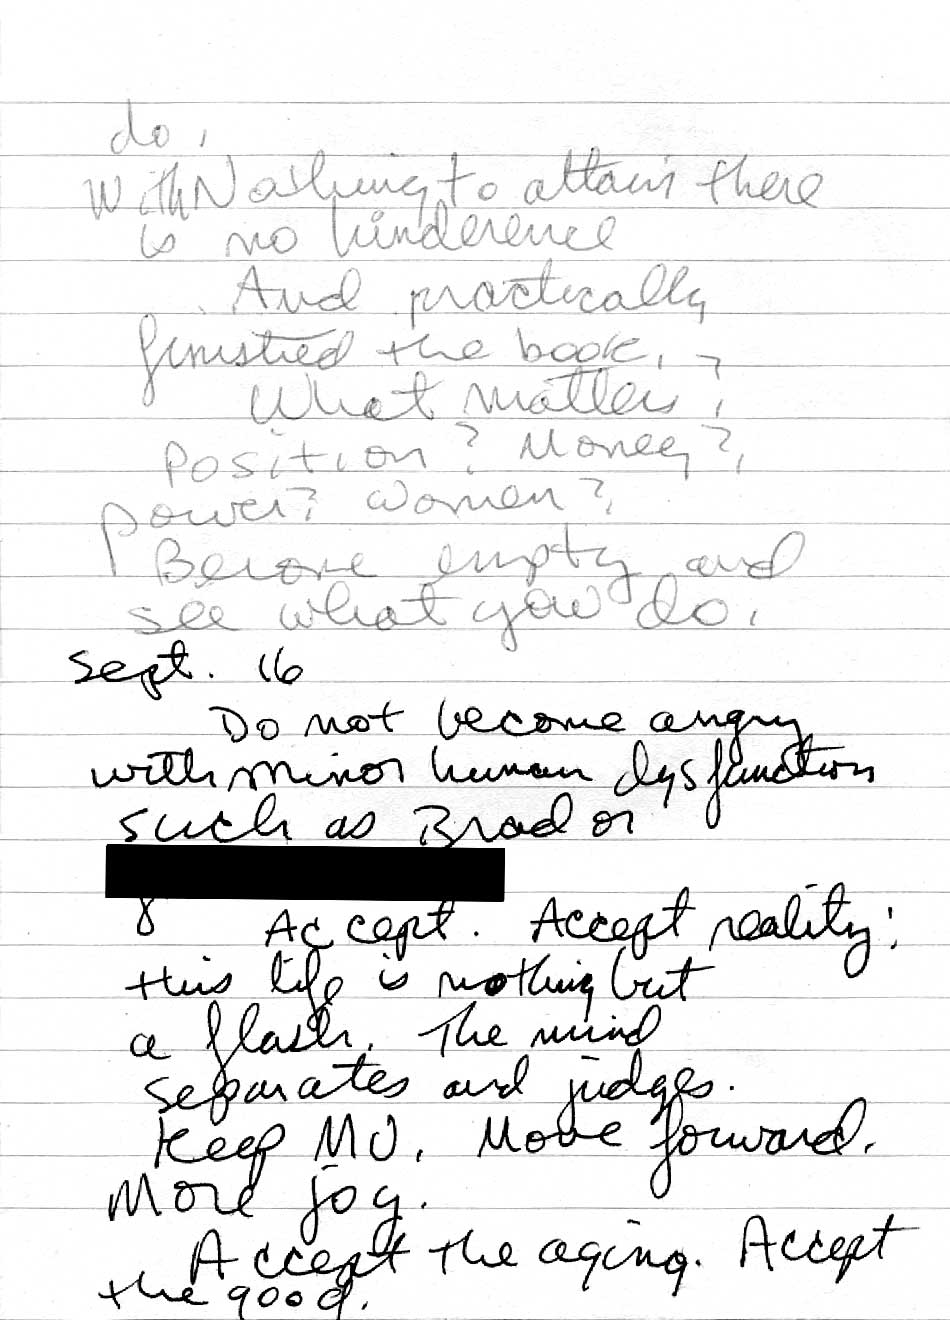 do.
With Nothing to attain there
is no hinderence
And practically
finished the book.
What matters?
Position? Money?,
power? Women?
Become empty and
see what you do.
Sept. 16
Do not become angry
with minor human dysfunction
such as Brad or
Accept. Accept reality:
this life is nothing but
a flash. The mind
separates and judges.
Keep MU. Move forward.
More joy.
Accept the aging. Accept
the good.